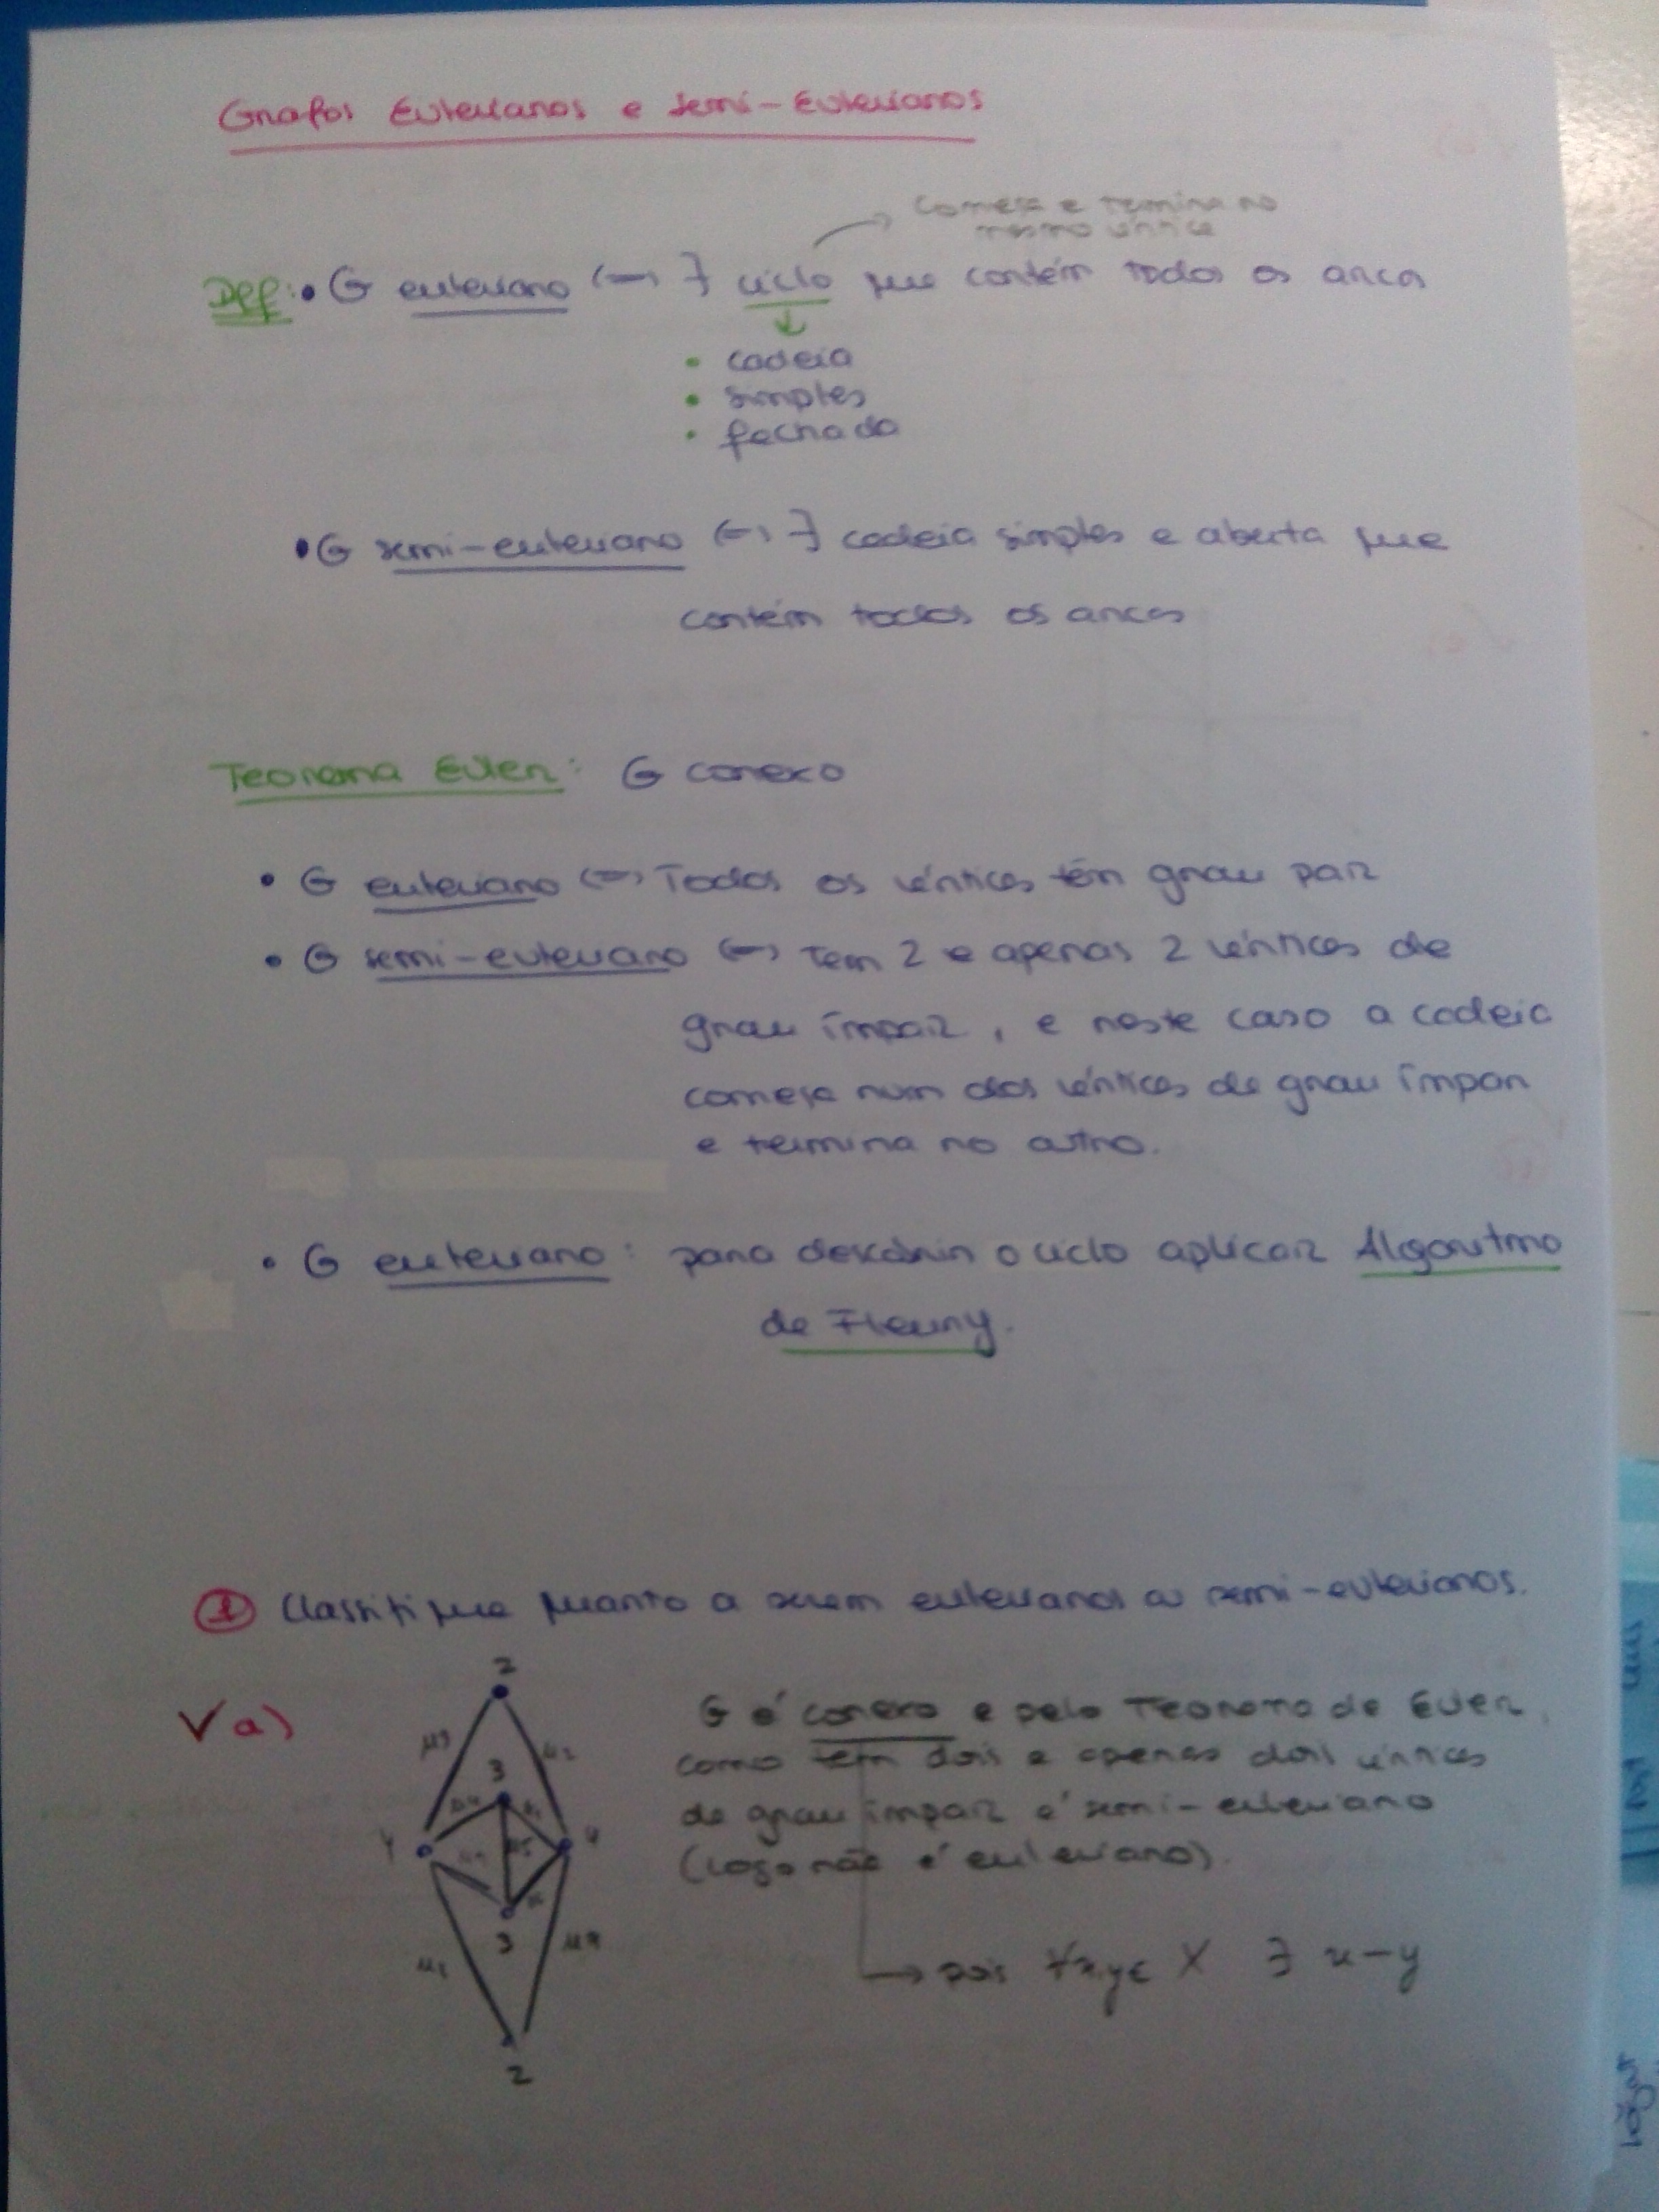 Grafos Eulerianos e semi-Eulerianos
começa e termina no
mesmo vértice
Def: • G euleriano <=> ∃ ciclo que contém todos os arcos
• cadeia
• simples
• fechada
• G semi-euleriano <=> ∃ cadeia simples e aberta que
contém todos os arcos
Teorema Euler: G conexo
• G euleriano <=> Todos os vértices têm grau par
• G semi-euleriano <=> Tem 2 e apenas 2 vértices de
grau ímpar, e neste caso a cadeia
começa num dos vértices de grau ímpar
e termina no outro.
• G euleriano: para descobrir o ciclo aplicar Algoritmo
de Fleury.
① Classifique quanto a serem eulerianos ou semi-eulerianos.
√ a)
2
μ3 μ2
3
4 4
3
μ8 μ7
2
G é conexo e pelo Teorema de Euler,
como tem dois e apenas dois vértices
de grau ímpar é semi-euleriano
(logo não é euleriano).
→ pois ∀x,y∈ X ∃ x-y